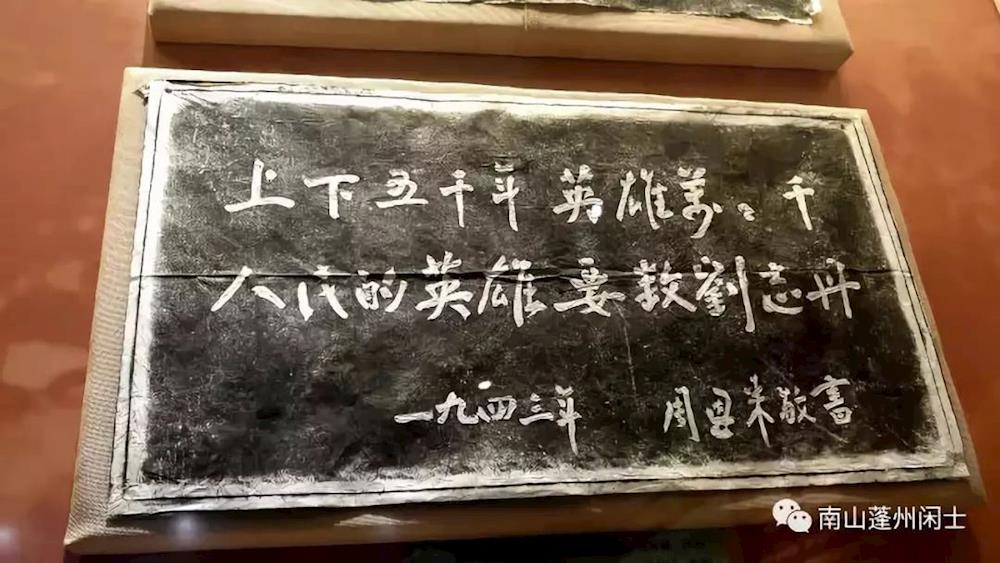 上下五千年 英雄萬々千
人民的英雄要数劉志丹
一九四三年 周恩来敬書
南山蓬州闲士